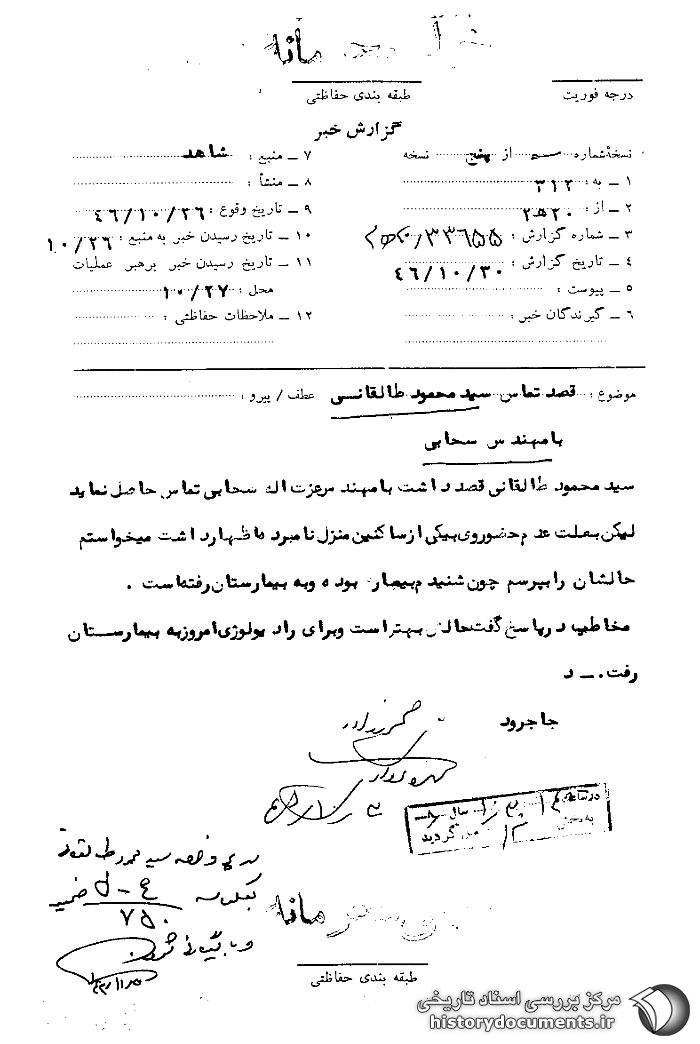 طبقه بندی حفاظتی
درجه فوریت
گزارش خبر
نسخه شماره از پنج نسخه
۱ – به: ۳۱۲
۲ – از: ۲۰ه۲
۳ – شماره گزارش:
۴ – تاریخ گزارش: ۴۶/۱۰/۳۰
۵ – پیوست:
۶ – گیرندگان خبر:
۷ – منبع: شاهد
۸ – منشأ:
۹ – تاریخ وقوع: ۴۶/۱۰/۲۶
۱۰ – تاریخ رسیدن خبر به منبع: ۱۰/۲۶
۱۱ – تاریخ رسیدن خبر برهبر عملیات
محل: ۱۰/۲۷
۱۲ – ملاحظات حفاظتی:
موضوع: قصد تماس سید محمود طالقانی
عطف / پیرو:
با مهندس سحابی
سید محمود طالقانی قصد داشت با مهندس عزت اله سحابی تماس حاصل نماید
لیکن بعلت عدم حضور وی بیکی از ساکنین منزل نامبرده اظهار داشت میخواستم
حالشان را بپرسم چون شنیدم بیمار بوده و به بیمارستان رفته است .
مخاطب در پاسخ گفت حالش بهتر است و برای رادیولوژی امروز به بیمارستان
رفت . – د
جاجرود
طبقه بندی حفاظتی
مرکز بررسی اسناد تاریخی
historydocuments.ir